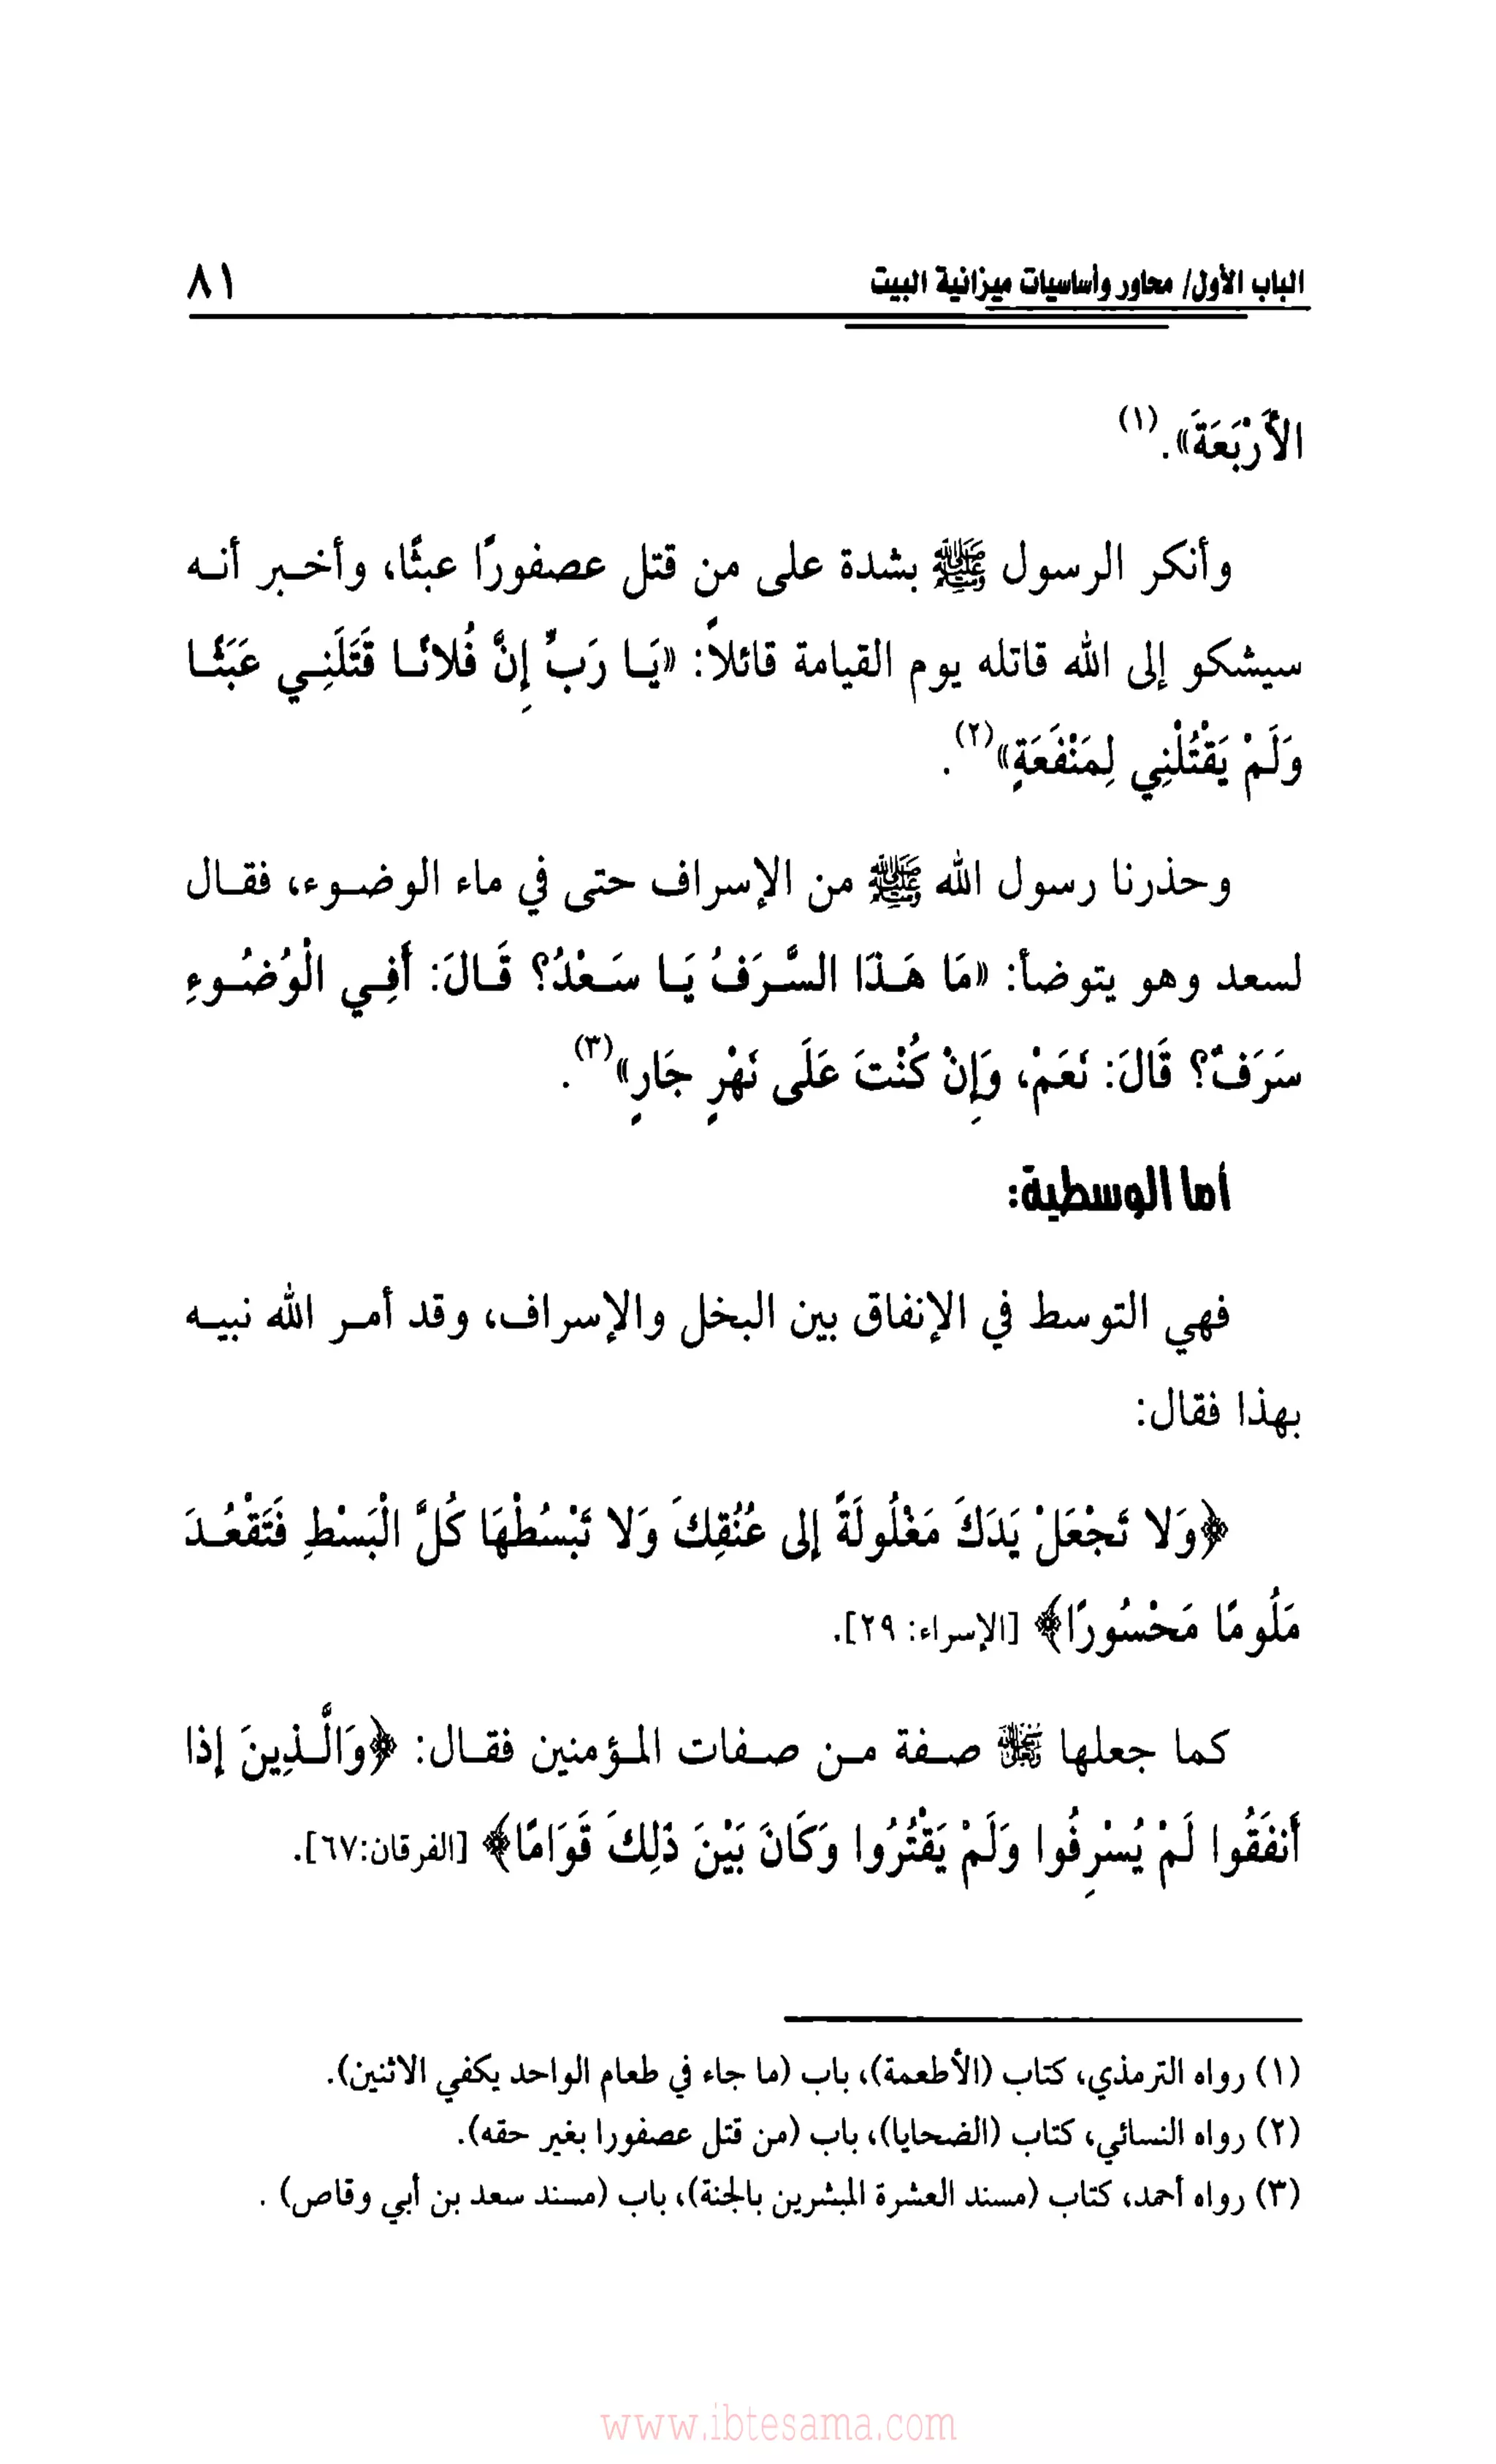 الباب الأول/ محاور وأساسيات ميزانية البيت ٨١
الأَرْبَعَةَ». (١)
وأنكر الرسول ﷺ بشدة على من قتل عصفورًا عبثًا، وأخبر أنه
سيشكو إلى الله قاتله يوم القيامة قائلاً: «يَا رَبِّ إِنَّ فُلانًا قَتَلَنِي عَبَثًا
وَلَمْ يَقْتُلْنِي لِمَنْفَعَةٍ»(٢).
وحذرنا رسول الله ﷺ من الإسراف حتى في ماء الوضوء، فقال
لسعد وهو يتوضأ: «مَا هَذَا السَّرَفُ يَا سَعْدُ؟ قَالَ: أَفِي الْوُضُوءِ
سَرَفٌ؟ قَالَ: نَعَمْ، وَإِنْ كُنْتَ عَلَى نَهْرٍ جَارٍ»(٣).
أما الوسطية:
فهي التوسط في الإنفاق بين البخل والإسراف، وقد أمر الله نبيه
بهذا فقال:
﴿وَلا تَجْعَلْ يَدَكَ مَغْلُولَةً إلى عُنُقِكَ وَلا تَبْسُطْهَا كُلَّ الْبَسْطِ فَتَقْعُدَ
مَلُومًا مَحْسُورًا﴾ [الإسراء: ٢٩].
كما جعلها ﷻ صفة من صفات المؤمنين فقال: ﴿وَالَّذِينَ إذا
أَنفَقُوا لَمْ يُسْرِفُوا وَلَمْ يَقْتُرُوا وَكَانَ بَيْنَ ذَلِكَ قَوَامًا﴾ [الفرقان:٦٧].
(١) رواه الترمذي، كتاب (الأطعمة)، باب (ما جاء في طعام الواحد يكفي الاثنين).
(٢) رواه النسائي، كتاب (الضحايا)، باب (من قتل عصفورا بغير حقه).
(٣) رواه أحمد، كتاب (مسند العشرة المبشرين بالجنة)، باب (مسند سعد بن أبي وقاص) .
www.ibtesama.com